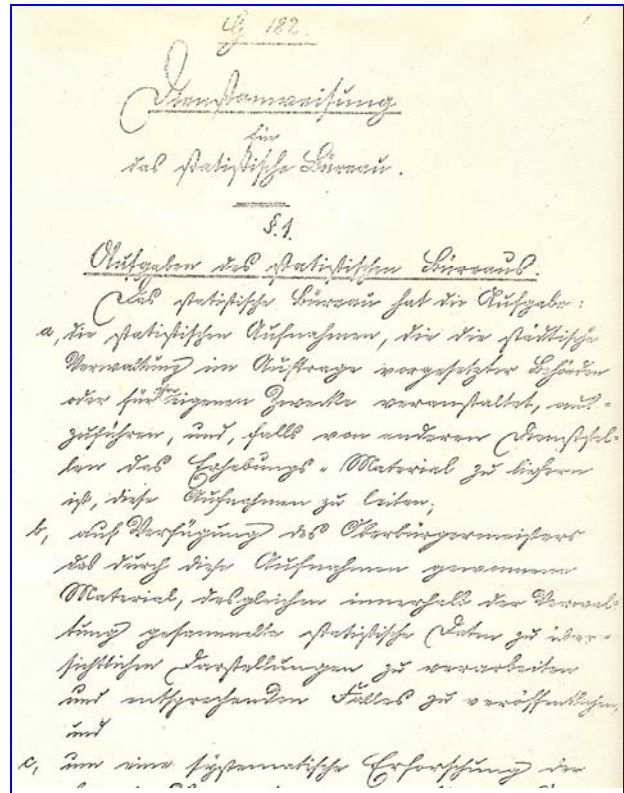 182.
Dienstanweisung
für
das statistische Büreau.
§.1.
Aufgaben des statistischen Büreaus.
Das statistische Büreau hat die Aufgabe:
a, die statistischen Aufnahmen, die die städtische
Verwaltung im Auftrage vorgesetzter Behörden
oder für ihre eigenen Zwecke veranstaltet, aus-
zuführen, und, falls von anderen Dienststel-
len das Erhebungs-Material zu liefern
ist, diese Aufnahmen zu leiten;
b, auf Verfügung des Oberbürgermeisters
das durch diese Aufnahmen gewonnene
Material, desgleichen innerhalb der Verwal-
tung gesammelte statistische Daten zu über-
sichtlichen Darstellungen zu verarbeiten
und entsprechenden Falles zu veröffentlichen,
und
c, um eine systematische Erforschung der